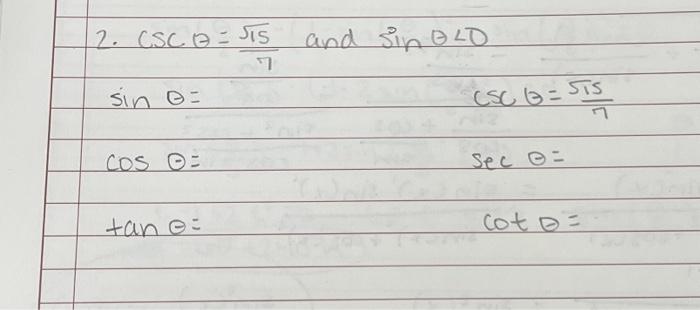 2. csc θ = √15/7 and sin θ < 0
sin θ = csc θ = √15/7
cos θ = sec θ =
tan θ = cot θ =